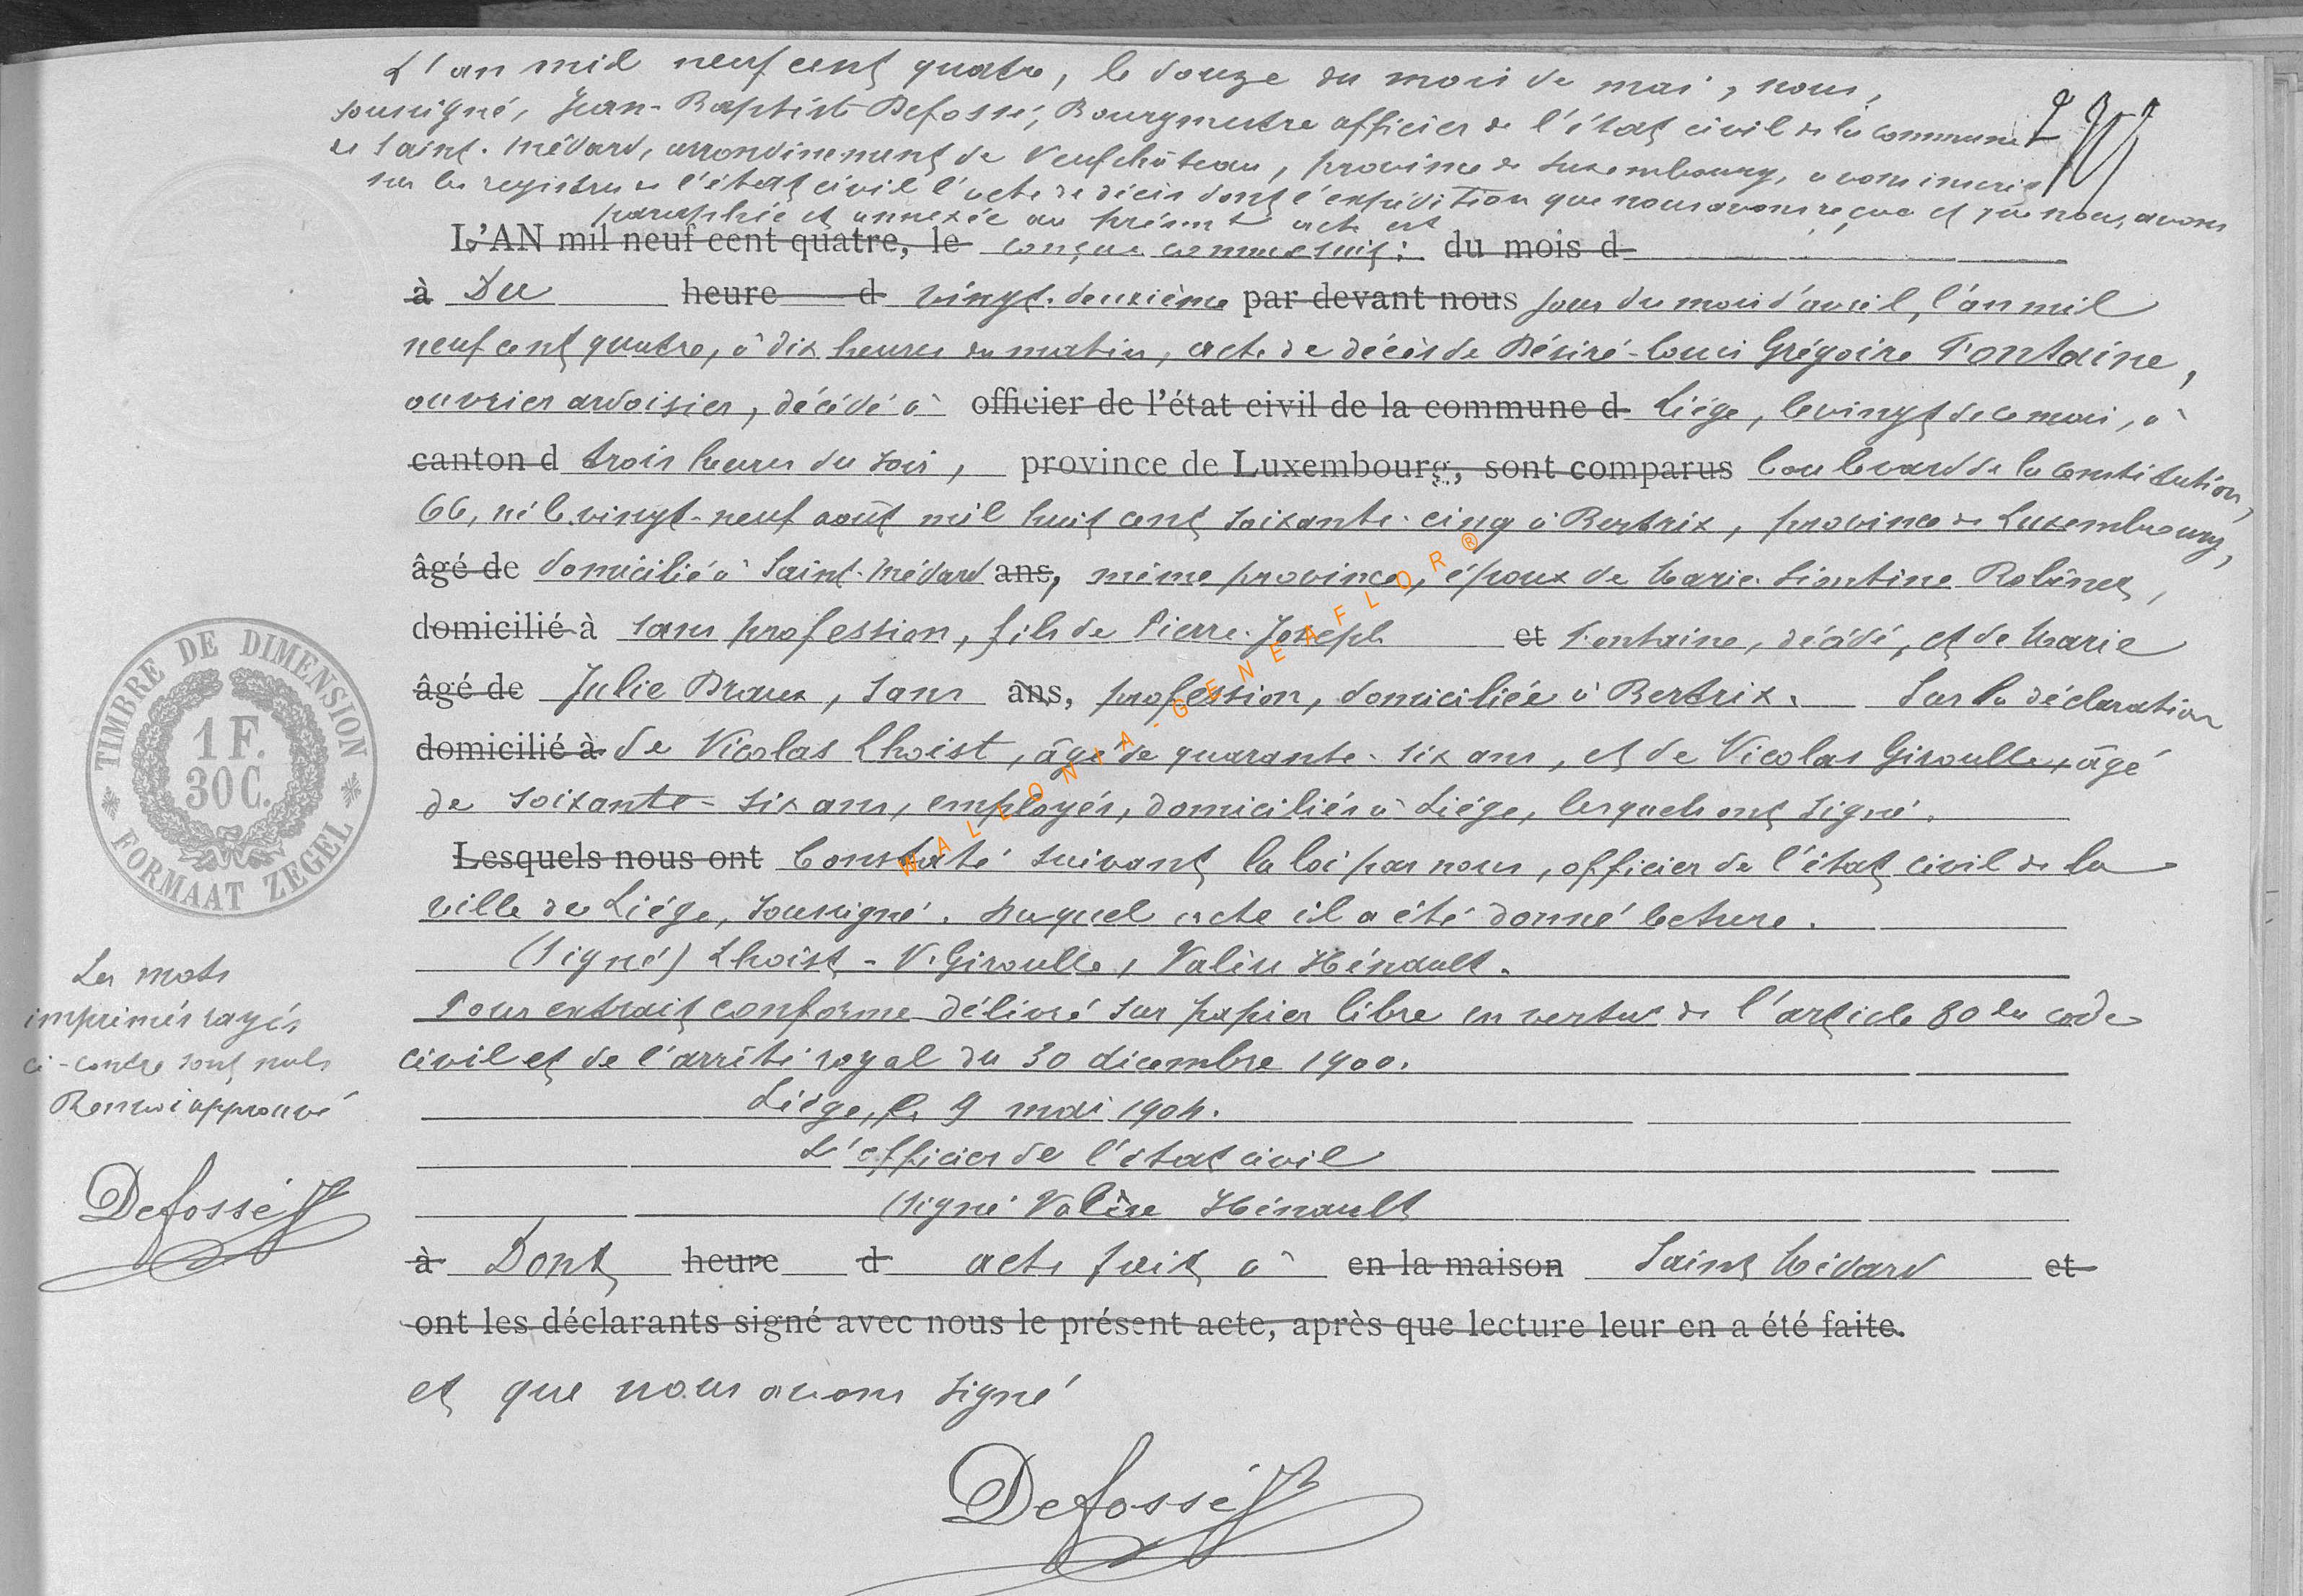 L'an mil neuf cent quatre, le douze du mois de mai, nous,
soussigné, Jean-Baptiste Defossé, Bourgmestre officier de l'état civil de la commune
de Saint-Médard, arrondissement de Neufchâteau, province de Luxembourg, avons inscrit
sur les registres de l'état civil l'acte de décès dont l'expédition que nous avons reçue et que nous avons
paraphée et annexée au présent acte est
L'AN mil neuf cent quatre, le conçue comme suit: du mois d
à Du heure d vingt-deuxième par devant nous jour du mois d'avril, l'an mil
neuf cent quatre, à dix heures du matin, acte de décès de Désiré-Louis Grégoire Fontaine,
ouvrier ardoisier, décédé à officier de l'état civil de la commune d Liége, le vingt de ce mois, à
canton d trois heures du soir, province de Luxembourg, sont comparus boulevard de la Constitution,
66, né le vingt-neuf août mil huit cent soixante-cinq à Bertrix, province de Luxembourg,
âgé de domicilié à Saint-Médard ans, même province, époux de Marie-Léontine Robinet,
domicilié à sans profession, fils de Pierre-Joseph et Fontaine, décédé, et de Marie
âgé de Julie Braux, sans ans, profession, domiciliée à Bertrix. Sur la déclaration
domicilié à de Nicolas Lhoist, âgé de quarante-six ans, et de Nicolas Giroulle, âgé
de soixante-six ans, employés, domiciliés à Liége, lesquels ont signé.
Lesquels nous ont Constaté suivant la loi par nous, officier de l'état civil de la
ville de Liége, soussigné. Duquel acte il a été donné lecture.
(Signé) Lhoist - N. Giroulle, Valère Hénault.
Pour extrait conforme délivré sur papier libre en vertu de l'article 80 du code
civil et de l'arrêté royal du 30 décembre 1900.
Liége, le 9 mai 1904.
L'officier de l'état civil
(signé Valère Hénault
à Dont heure d acte fait à en la maison Saint Médard et
ont les déclarants signé avec nous le présent acte, après que lecture leur en a été faite.
et que nous avons signé
Defossé
TIMBRE DE DIMENSION
1 F.
30 C.
FORMAAT ZEGEL
Les mots
imprimés rayés
ci-contre sont nuls
Renvoi approuvé
Defossé
WALLONIA-GENEAFLOR®